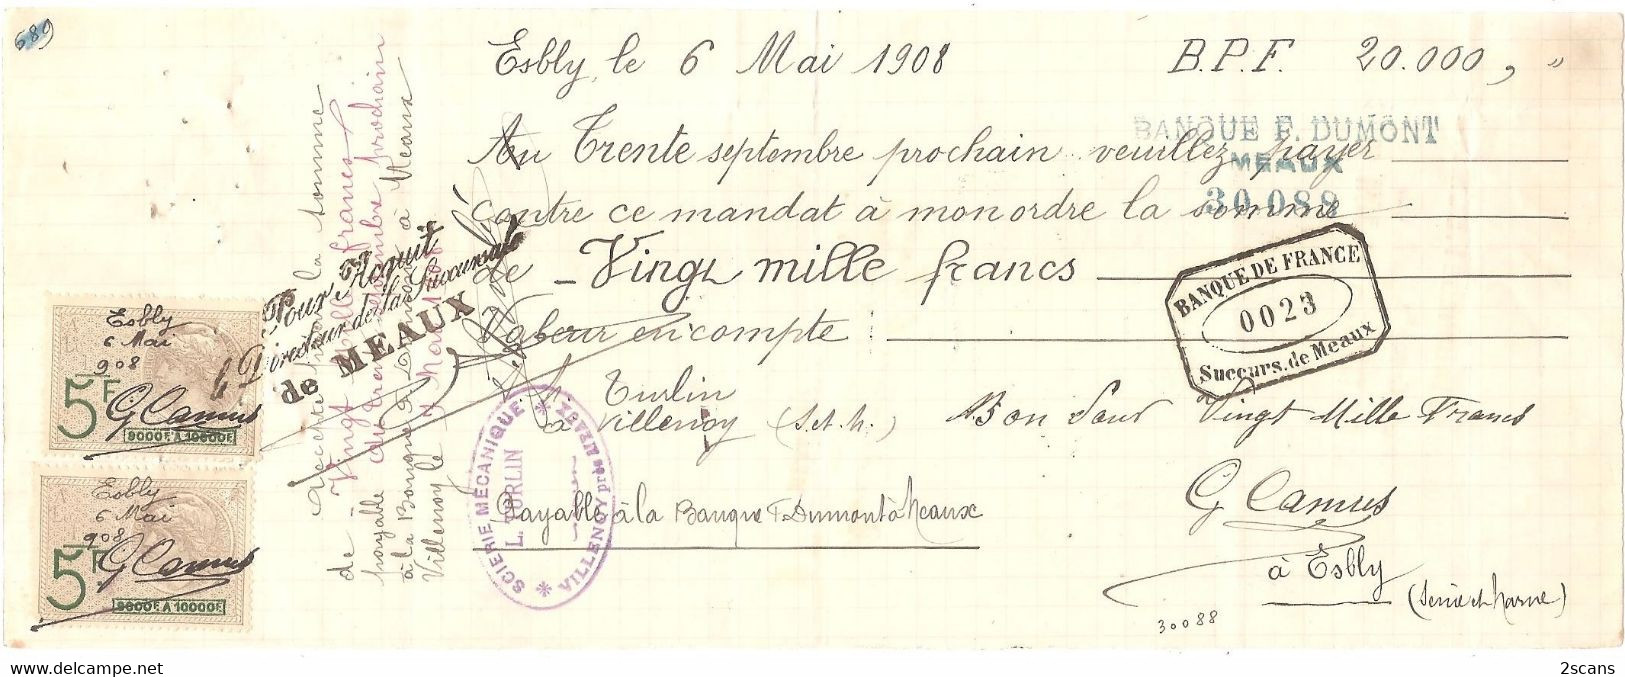 689
Esbly, le 6 Mai 1908 B.P.F. 20.000, "
BANQUE F. DUMONT
MEAUX
30.088
Au Trente septembre prochain veuillez payer
contre ce mandat à mon ordre la somme
de - Vingt mille francs
Valeur en compte
L. Turlin
à Villenoy (S.et.M.)
Bon Pour Vingt Mille Francs
Payable à la Banque F. Dumont à Meaux
G Camus
à Esbly
(Seine et Marne)
30088
BANQUE DE FRANCE
0023
Succurs. de Meaux
SCIERIE MÉCANIQUE
L. TURLIN
VILLENOY près MEAUX
Pour Acquit
Directeur de la Succursale
de MEAUX
Accepté pour la somme
de - Vingt mille francs
payable au trente septembre prochain
à la Banque F. Dumont à Meaux
Villenoy le 7 Mai 1908
Esbly
6 Mai
908
G Camus
5F
9000F. A 10000F.
Esbly
6 Mai
908
G Camus
5F
9000F. A 10000F.
2scans